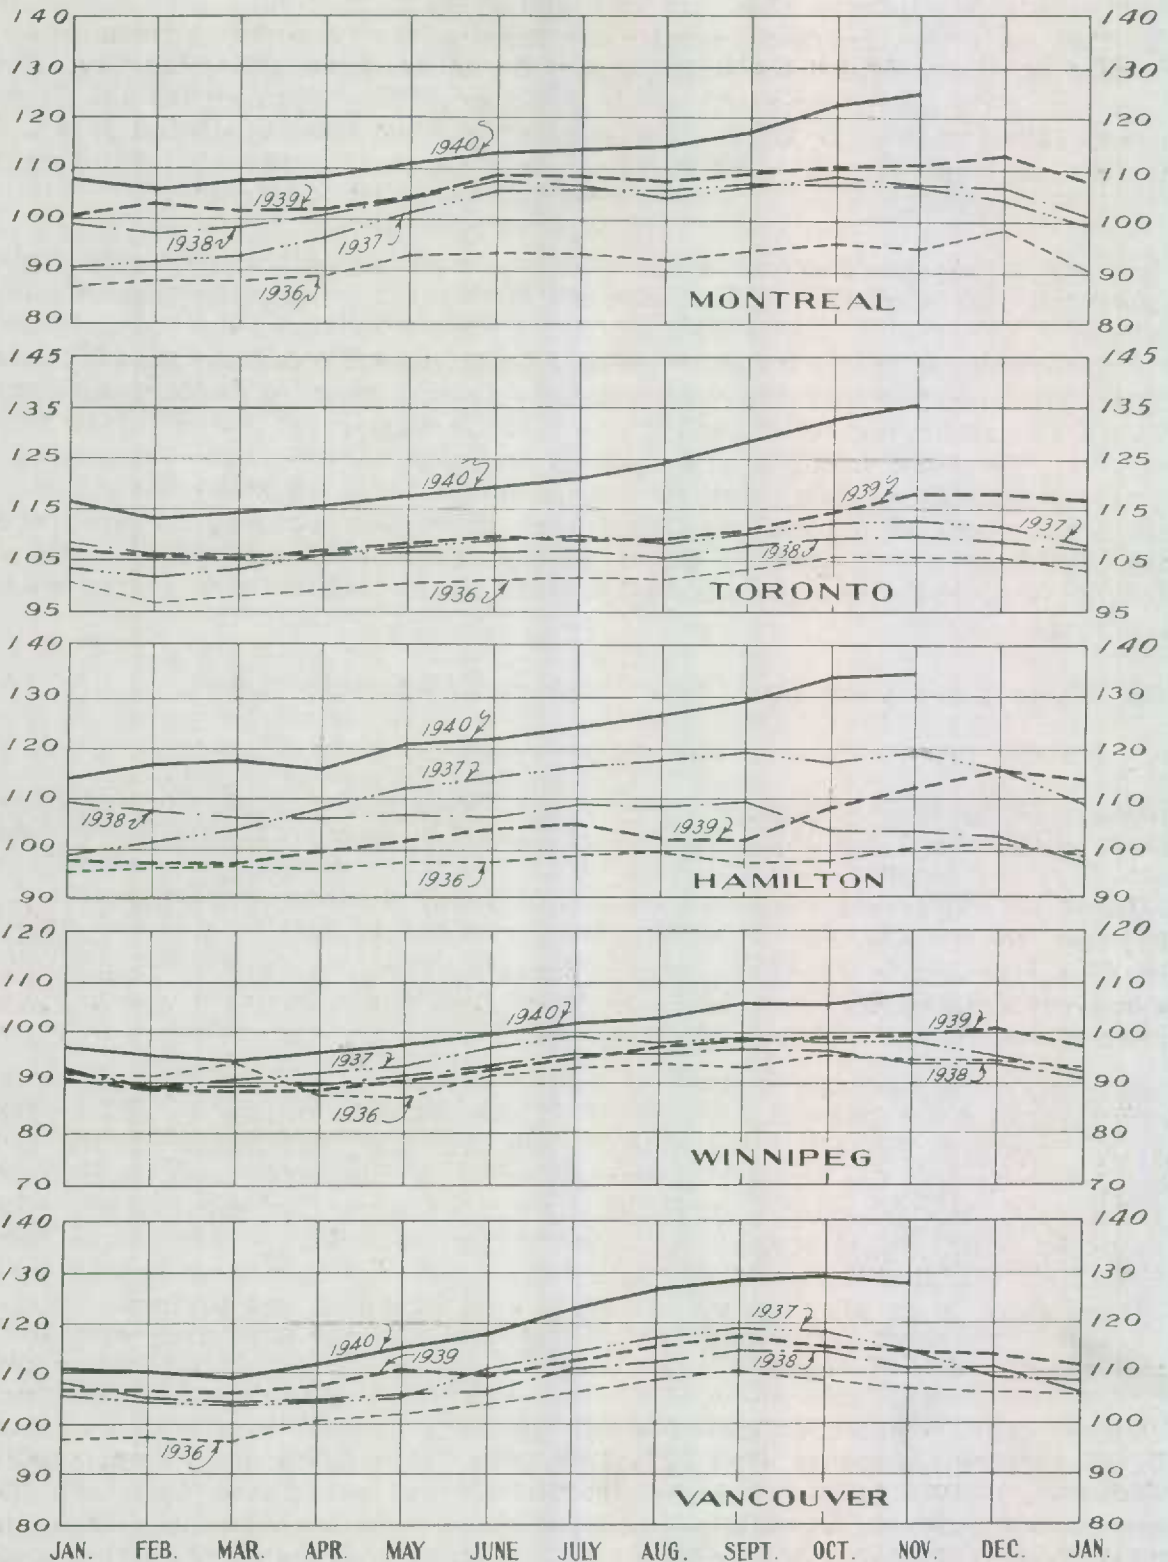 140 140
130 130
120 120
110 110
100 100
90 90
80 80
1940
1939
1938
1937
1936
MONTREAL
145 145
135 135
125 125
115 115
105 105
95 95
1940
1939
1937
1938
1936
TORONTO
140 140
130 130
120 120
110 110
100 100
90 90
1940
1937
1938
1939
1936
HAMILTON
120 120
110 110
100 100
90 90
80 80
70 70
1940
1939
1937
1938
1936
WINNIPEG
140 140
130 130
120 120
110 110
100 100
90 90
80 80
1937
1940
1939
1938
1936
VANCOUVER
JAN. FEB. MAR. APR. MAY JUNE JULY AUG. SEPT. OCT. NOV. DEC. JAN.